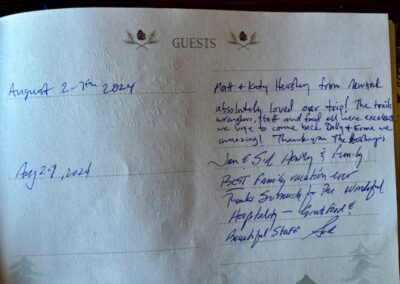 GUESTS
August 2-7th 2024
Matt & Katy Hershey from
absolutely loved our trip! The trails
wranglers, staff and food all were excellent
we hope to come back Dolly & Ernie are
amazing! Thank you The Hershey's
Aug 2-7, 2024
Jan & Sid & Family
BEST Family vacation ever
Thanks So much for The wonderful
Hospitality - Great Food &
Beautiful Staff